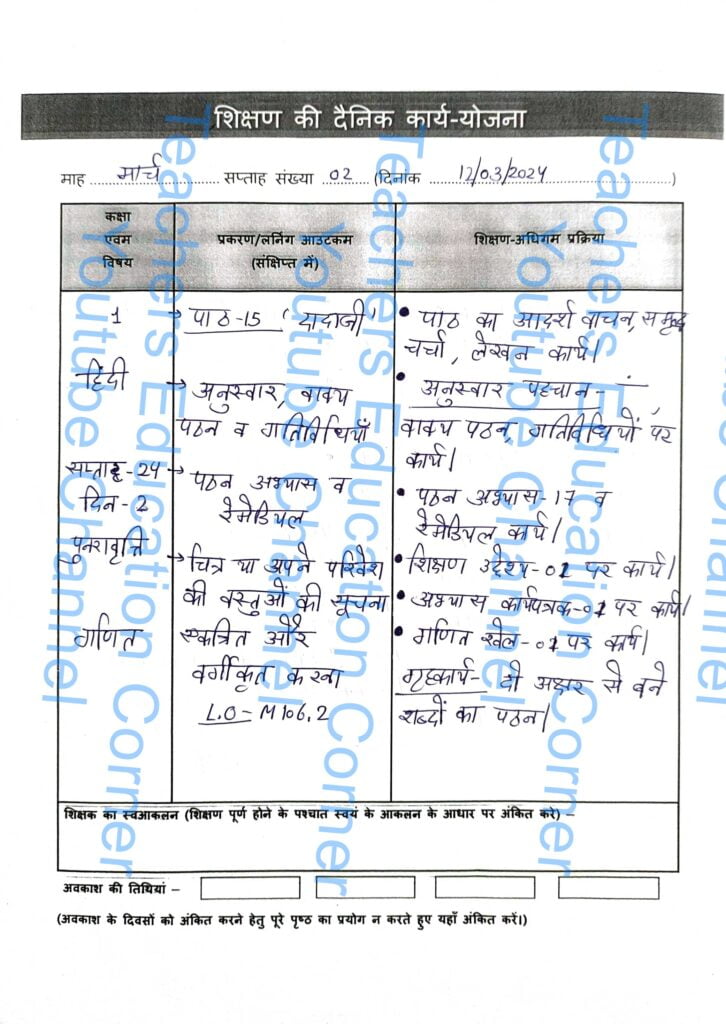 शिक्षण की दैनिक कार्य-योजना
माह मार्च सप्ताह संख्या 02 (दिनांक 12/03/2024)
कक्षा एवम विषय
प्रकरण/लर्निंग आउटकम (संक्षिप्त में)
शिक्षण-अधिगम प्रक्रिया
1
हिंदी
सप्ताह-24
दिन-2
पुनरावृत्ति
गणित
→ पाठ-15 'दादाजी'
→ अनुस्वार, वाक्य
पठन व गतिविधियाँ
→ पठन अभ्यास व
रेमेडियल
→ चित्र या अपने परिवेश
की वस्तुओं की सूचना
एकत्रित और
वर्गीकृत करना
L.O-M106.2
• पाठ का आदर्श वाचन, समूह
चर्चा, लेखन कार्य।
• अनुस्वार पहचान- ं,
वाक्य पठन, गतिविधियों पर
कार्य।
• पठन अभ्यास-17 व
रेमेडियल कार्य।
• शिक्षण उद्देश्य-01 पर कार्य।
• अभ्यास कार्यपत्रक-01 पर कार्य।
• गणित खेल-01 पर कार्य।
गृहकार्य- दो अक्षर से बने
शब्दों का पठन।
शिक्षक का स्वआकलन (शिक्षण पूर्ण होने के पश्चात स्वयं के आकलन के आधार पर अंकित करे) –
अवकाश की तिथियां –
(अवकाश के दिवसों को अंकित करने हेतु पूरे पृष्ठ का प्रयोग न करते हुए यहाँ अंकित करें।)
Teachers Education Corner
Youtube Channel
Teachers Education Corner
Youtube Channel
Teachers Education Corner
Youtube Channel